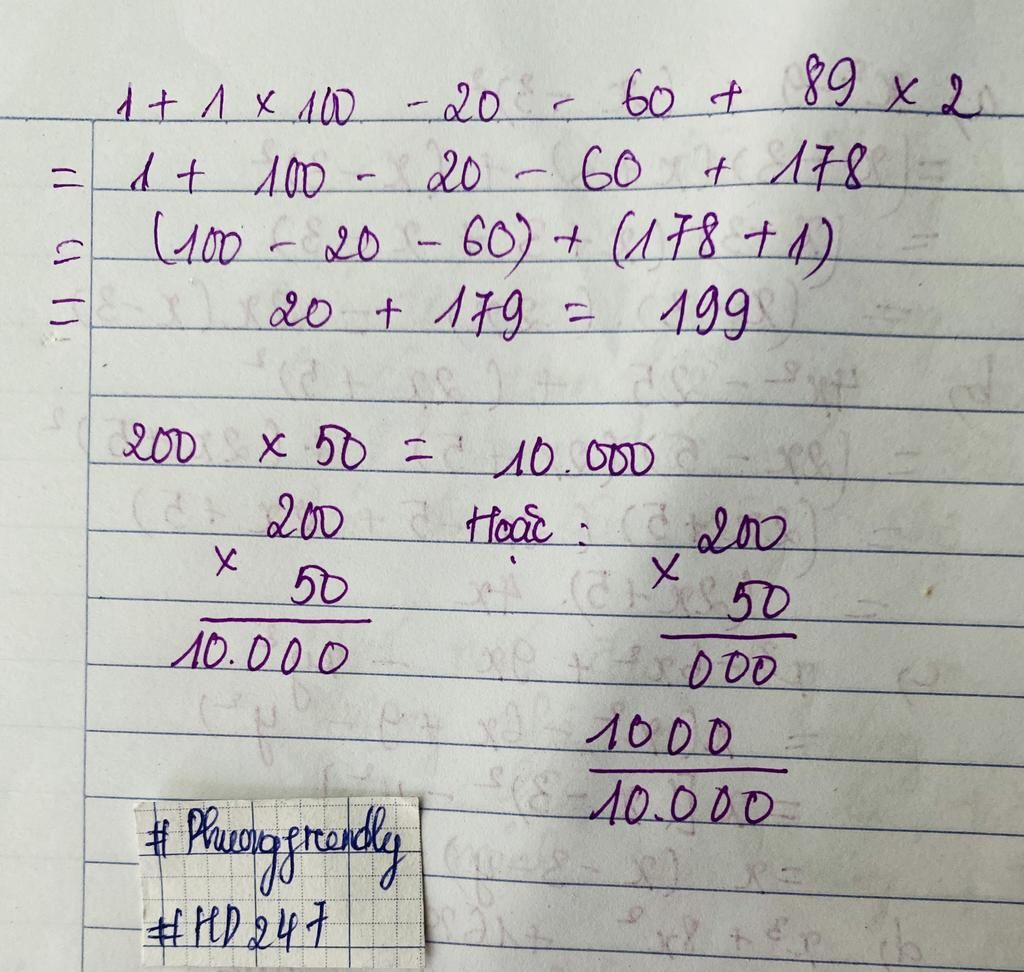 1 + 1 × 100 - 20 - 60 + 89 × 2
= 1 + 100 - 20 - 60 + 178
= (100 - 20 - 60) + (178 + 1)
= 20 + 179 = 199
200 × 50 = 10.000
200 Hoặc : 200
× 50 × 50
10.000 000
1000
10.000
# Phuongfrendly
#HD247